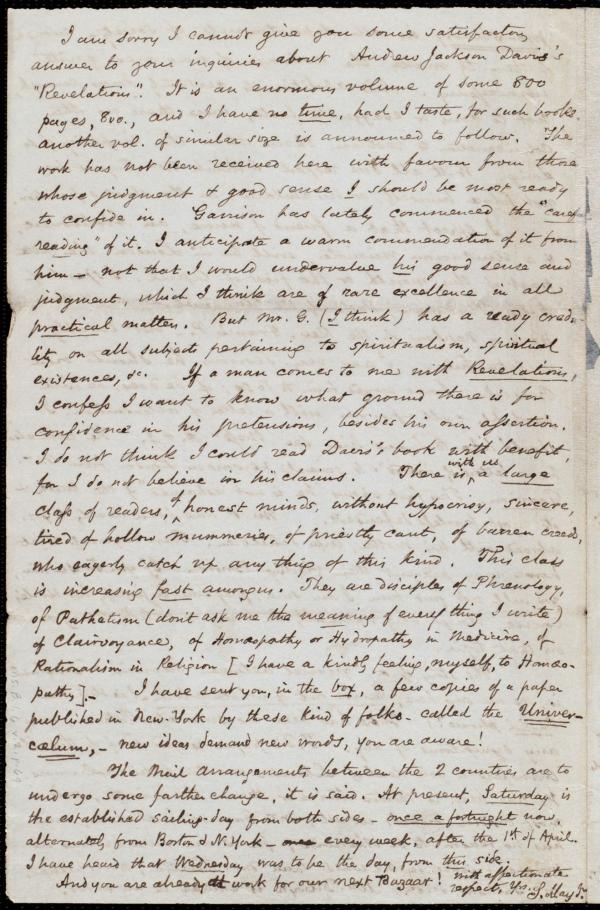 I am sorry I cannot give you some satisfactory
answer to your inquiries about Andrew Jackson Davis's
"Revelations". It is an enormous volume of some 800
pages, 8vo., and I have no time, had I taste, for such books.
another vol. of similar size is announced to follow. The
work has not been received here with favour from those
whose judgment & good sense I should be most ready
to confide in. Garrison has lately commenced the "careful
reading" of it. I anticipate a warm commendation of it from
him – not that I would undervalue his good sense and
judgment, which I think are of rare excellence in all
practical matters. But Mr. G. (I think) has a ready credu-
lity on all subjects pertaining to spiritualism, spiritual
existences, &c. If a man comes to me with Revelations,
I confess I want to know what ground there is for
confidence in his pretensions, besides his own assertion.
I do not think I could read Davis's book with benefit,
for I do not believe in his claims. There is with us a large
class of readers, of honest minds, without hypocrisy, sincere,
tired of hollow mummeries, of priestly cant, of barren creeds,
who eagerly catch up any thing of this kind. This class
is increasing fast among us. They are disciples of Phrenology,
of Pathetism (don't ask me the meaning of every thing I write)
of Clairvoyance, of Homœopathy or Hydropathy in Medicine, of
Rationalism in Religion [I have a kindly feeling, myself, to Homœo-
pathy]. – I have sent you, in the box, a few copies of a paper
published in New-York by these kind of folks – called the Univer-
cœlum, – new ideas demand new words, you are aware!
The Mail arrangements between the 2 countries are to
undergo some farther change, it is said. At present, Saturday is
the established sailing-day from both sides – once a fortnight now,
alternately from Boston & N. York – every week, after the 1st of April.
I have heard that Wednesday was to be the day, from this side.
And you are already at work for our next Bazaar! with affectionate
respect, Yrs. S. May Jr.